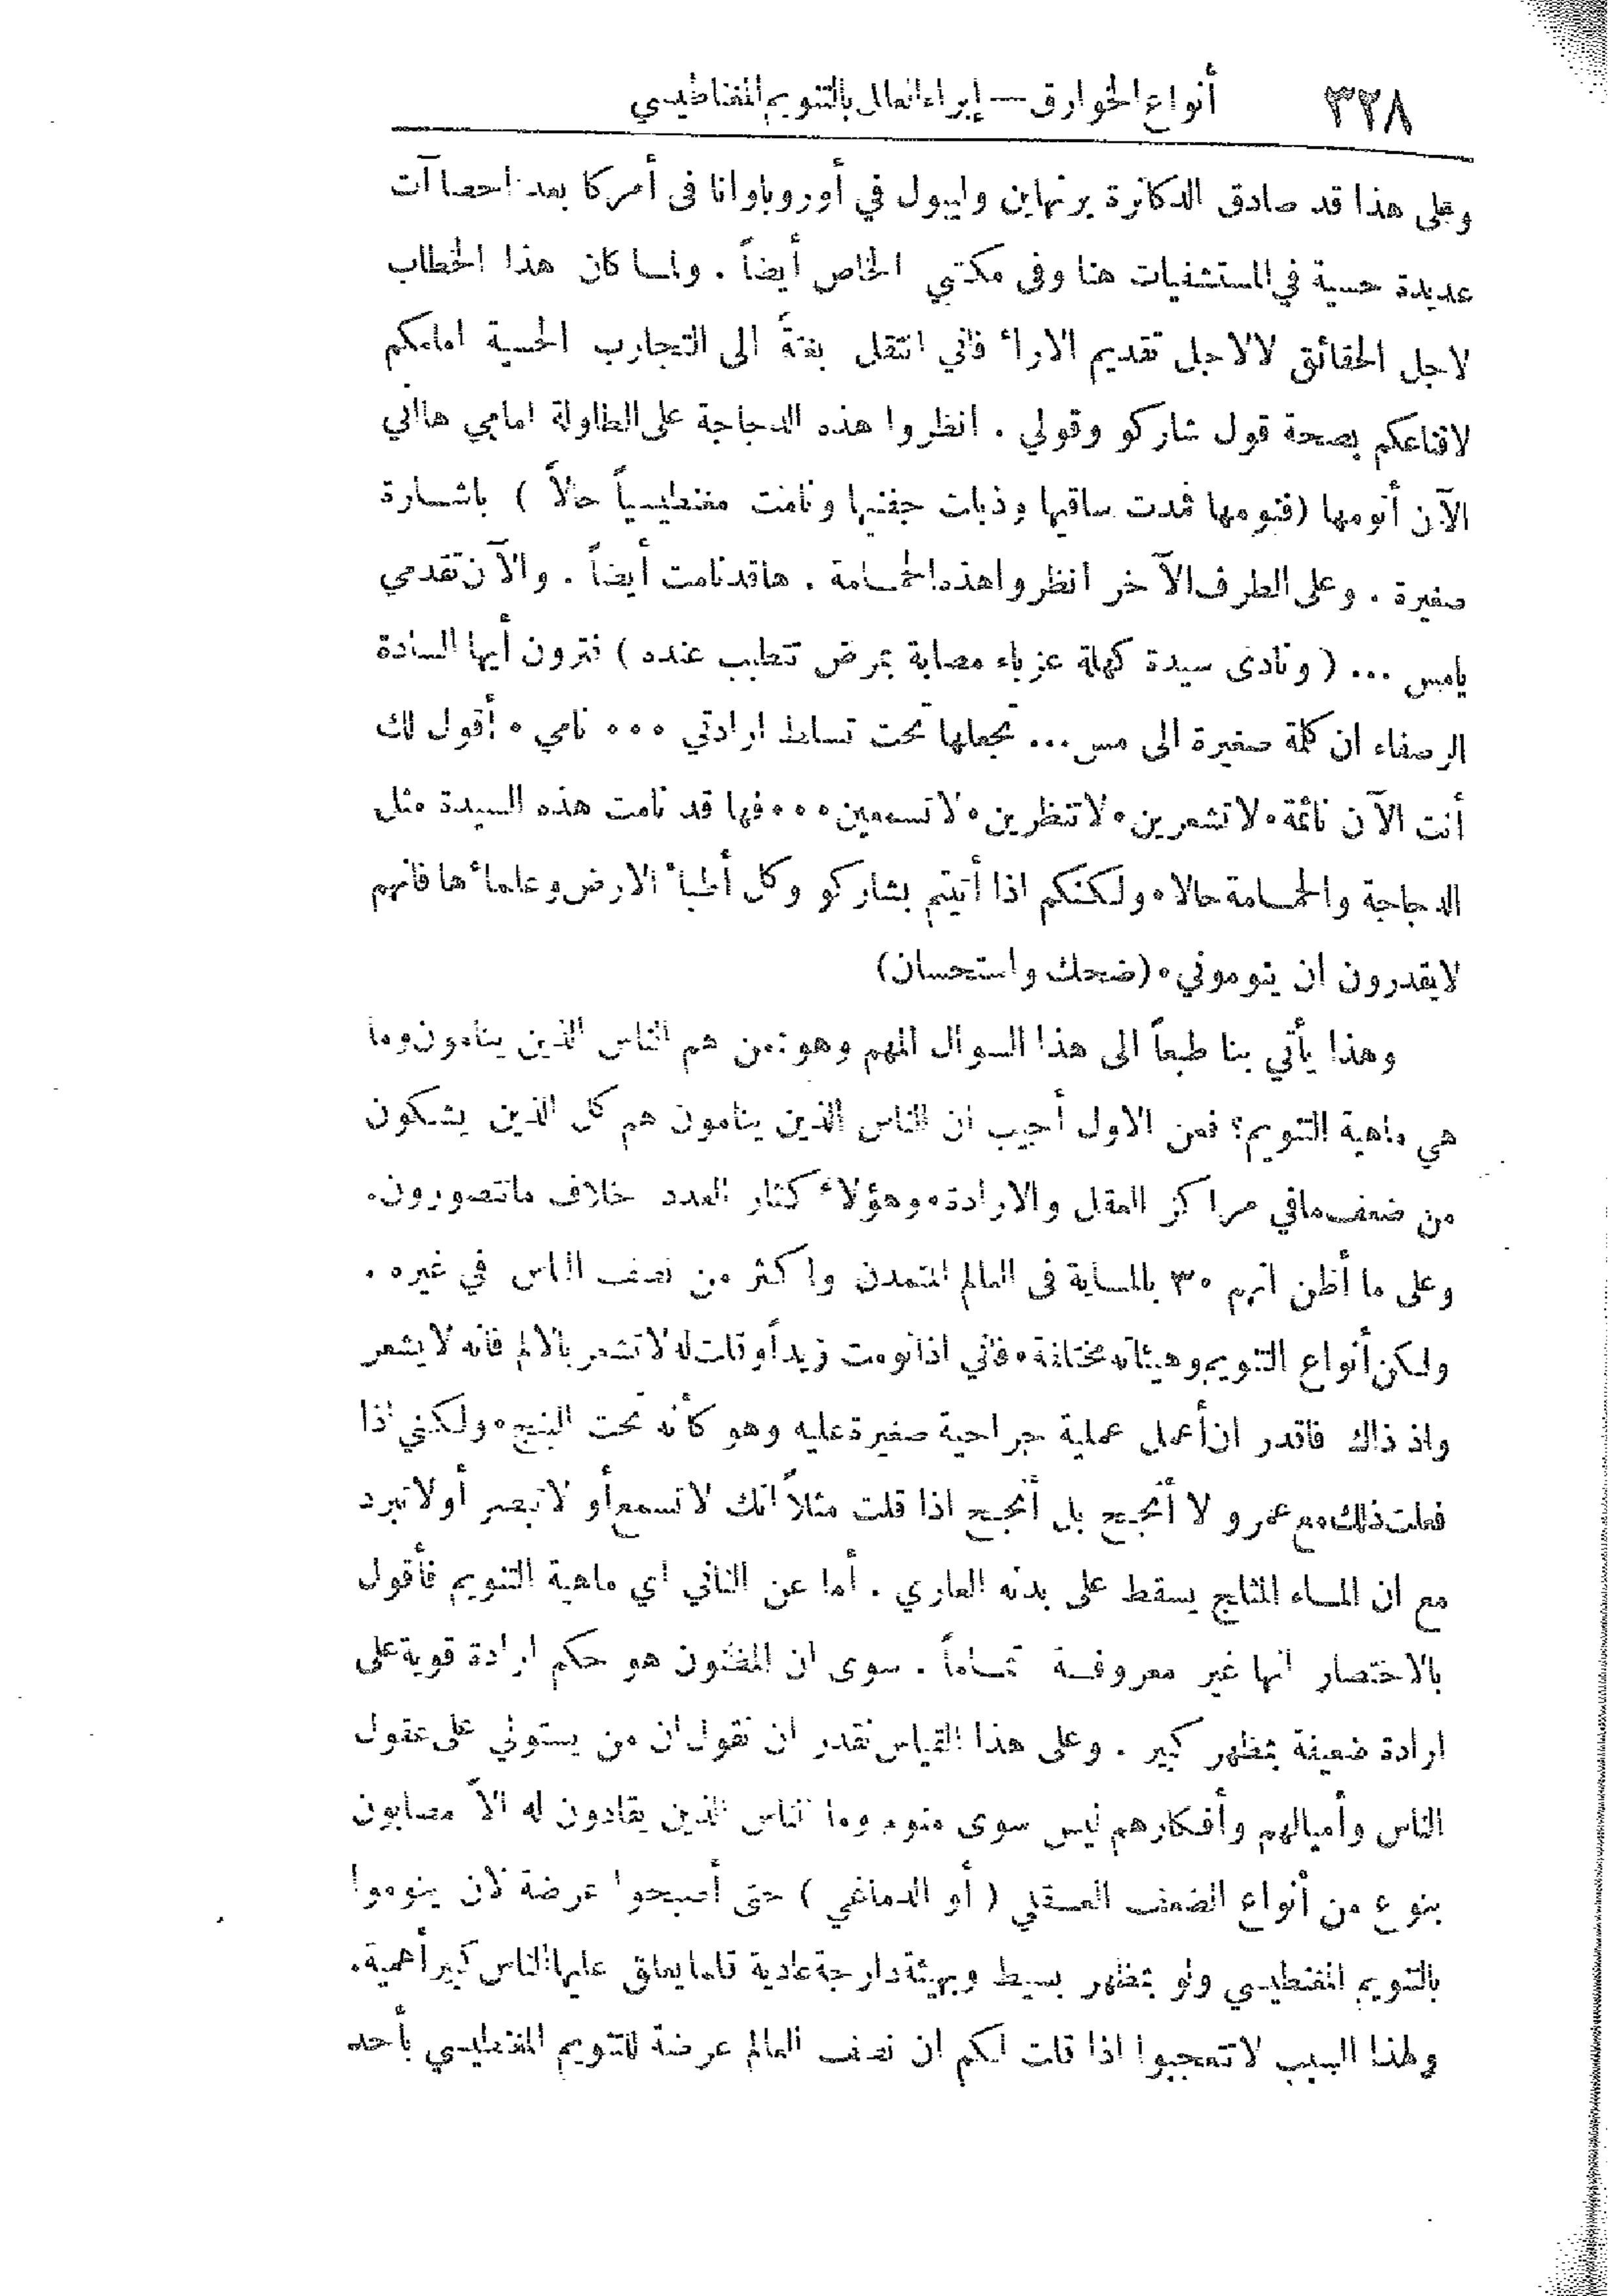 ٣٢٨ أنواع الخوارق — إبراء العلل بالتنويم المغناطيسي
وعلى هذا قد صادق الدكاترة برنهاين وليبول في أوروبا وانا فى أمركا بعد احصاآت
عديدة حسية في المستشفيات هنا وفى مكتبي الخاص أيضاً . ولما كان هذا الخطاب
لاجل الحقائق لا لاجل تقديم الاراء فاني انتقل بغتةً الى التجارب الحسية امامكم
لاقناعكم بصحة قول شاركو وقولي . انظروا هذه الدجاجة على الطاولة امامي ها اني
الآن أنومها (فنومها فمدت ساقيها وذبلت جفنيها ونامت مغنطيسياً حالاً ) باشارة
صغيرة . وعلى الطرف الآخر انظروا هذه الحمامة . ها قد نامت أيضاً . والآن تقدمي
يا مس ... ( ونادى سيدة كهلة عزباء مصابة بمرض تتطبب عنده ) فترون أيها السادة
الرصفاء ان كلمة صغيرة الى مس ... تجعلها تحت تسلط ارادتي ... نامي . أقول لك
أنت الآن نائمة . لا تشعرين . لا تنظرين . لا تسمعين ... فها قد نامت هذه السيدة مثل
الدجاجة والحمامة حالا . ولكنكم اذا أتيتم بشاركو وكل أطباء الارض وعلماءها فانهم
لا يقدرون ان ينوموني . (ضحك واستحسان)
وهذا يأتي بنا طبعاً الى هذا السوال المهم وهو : من هم الناس الذين ينامون وما
هي ماهية التنويم ؟ فعن الاول أجيب ان الناس الذين ينامون هم كل الذين يشكون
من ضعف ما في مراكز العقل والارادة . وهؤلاء كثار العدد خلاف ما تتصورون .
وعلى ما أظن انهم ٣٠ بالماية فى العالم المتمدن واكثر من نصف الناس في غيره .
ولكن أنواع التنويم وهيئاته مختلفة . فاني اذا نومت زيداً وقلت له لا تشعر بالالم فانه لا يشعر
واذ ذاك فاقدر ان أعمل عملية جراحية صغيرة عليه وهو كأنه تحت البنج . ولكني اذا
فعلت ذلك مع عمرو لا أنجح بل أنجح اذا قلت مثلاً انك لا تسمع أو لا تبصر أو لا تبرد
مع ان الماء المثلج يسقط على بدنه العاري . أما عن الثاني اي ماهية التنويم فأقول
بالاختصار انها غير معروفة تماماً . سوى ان المظنون هو حكم ارادة قوية على
ارادة ضعيفة بمظهر كبير . وعلى هذا القياس نقدر ان نقول ان من يستولي على عقول
الناس وأميالهم وأفكارهم ليس سوى منوم وما الناس الذين يقادون له الاّ مصابون
بنوع من أنواع الضعف العقلي ( أو الدماغي ) حتى أصبحوا عرضة لان ينوموا
بالتنويم المغنطيسي ولو بمظهر بسيط وبهيئة دارجة عادية قلما يعلق عليها الناس كبير أهمية .
ولهذا السبب لا تتعجبوا اذا قلت لكم ان نصف العالم عرضة للتنويم المغنطيسي بأحد